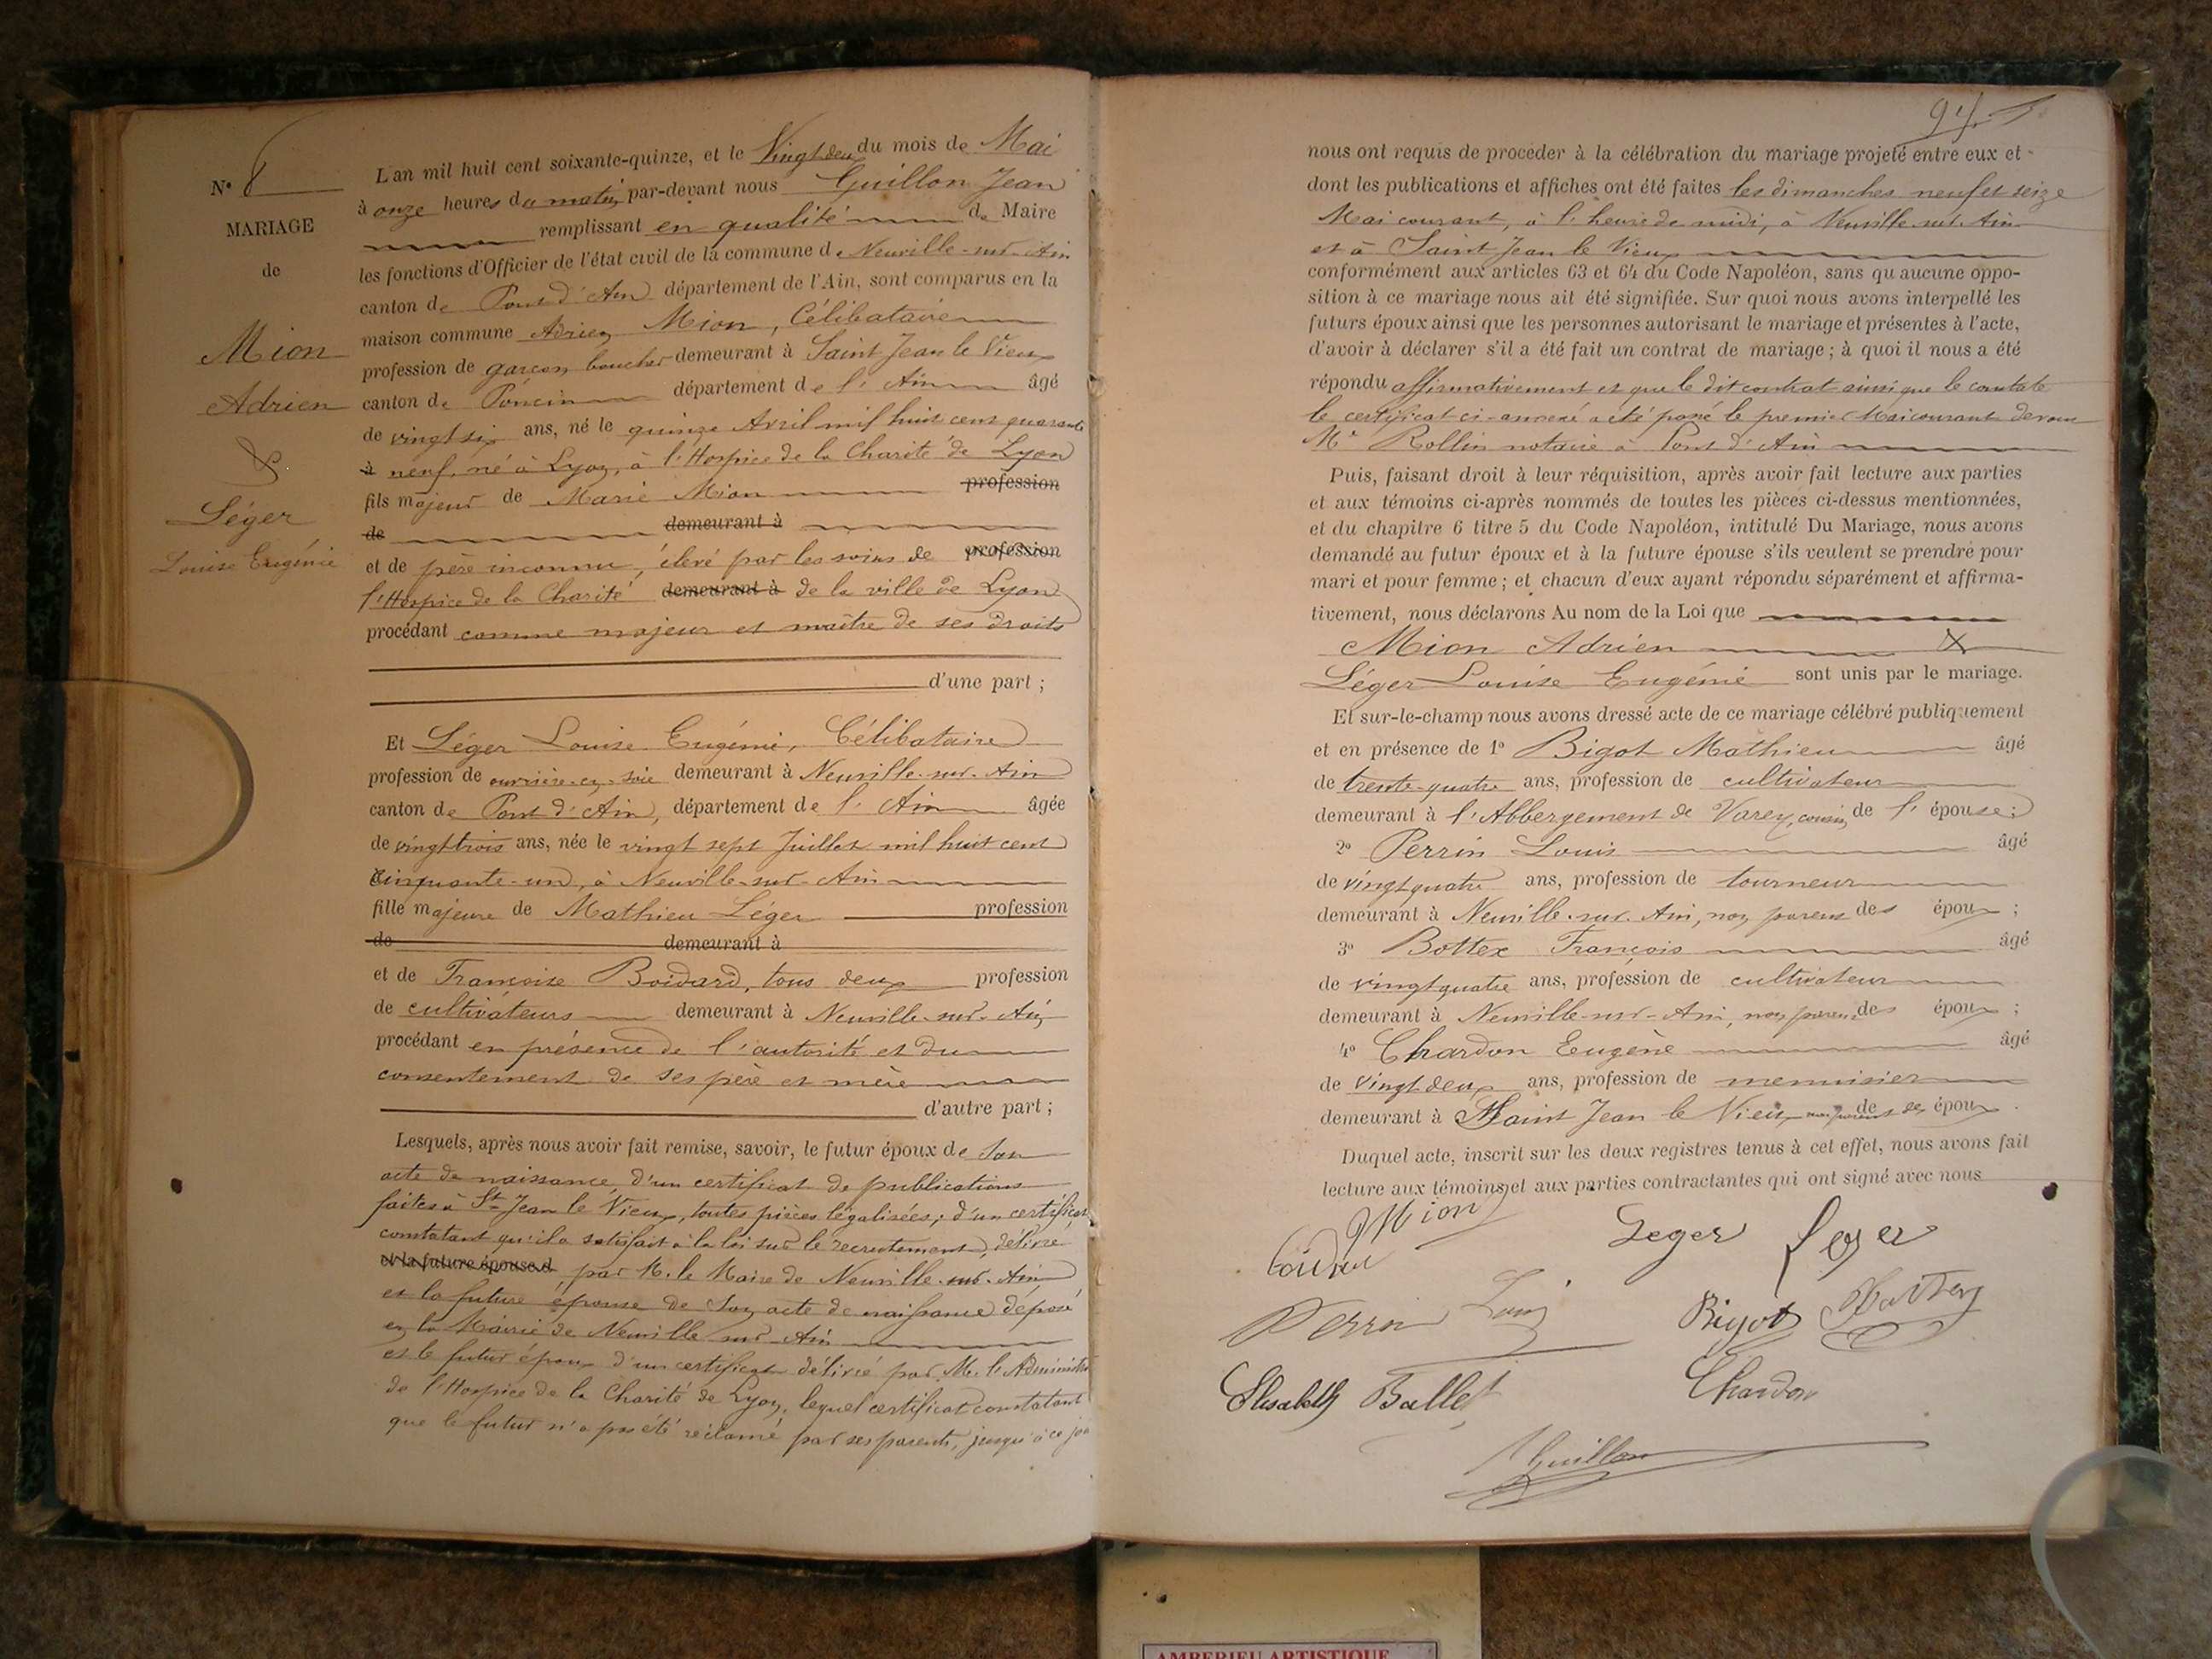 N° 8
MARIAGE
de
Mion
Adrien
&
Léger
Louise Eugénie
L'an mil huit cent soixante-quinze, et le Vingt deux du mois de Mai
à onze heures du matin par-devant nous Guillon Jean
remplissant en qualité de Maire
les fonctions d'Officier de l'état civil de la commune de Neuville-sur-Ain
canton de Pont d'Ain département de l'Ain, sont comparus en la
maison commune Adrien Mion, Célibataire
profession de garçon boucher demeurant à Saint Jean le Vieux
canton de Poncin département de l'Ain âgé
de vingt six ans, né le quinze Avril mil huit cent quarante
à neuf, né à Lyon, à l'Hospice de la Charité de Lyon
fils majeur de Marie Mion profession
de demeurant à
et de père inconnu, élevé par les soins de profession
l'Hospice de la Charité demeurant à de la ville de Lyon
procédant comme majeur et maître de ses droits
d'une part ;
Et Léger Louise Eugénie, Célibataire
profession de ouvrière-en-soie demeurant à Neuville-sur-Ain
canton de Pont d'Ain, département de l'Ain âgée
de vingt trois ans, née le vingt sept Juillet mil huit cent
cinquante-un, à Neuville-sur-Ain
fille majeure de Mathieu Léger profession
de demeurant à
et de Françoise Boidard, tous deux profession
de cultivateurs demeurant à Neuville-sur-Ain
procédant en présence de l'autorité et du
consentement de ses père et mère
d'autre part ;
Lesquels, après nous avoir fait remise, savoir, le futur époux de son
acte de naissance, d'un certificat de publications
faites à St Jean le Vieux, toutes pièces légalisées ; d'un certificat
constatant qu'il a satisfait à la loi sur le recrutement, délivré
et la future épouse d, par M. le Maire de Neuville-sur-Ain
et la future épouse de son acte de naissance déposé
en la Mairie de Neuville sur Ain
et le futur époux d'un certificat délivré par M. l'Administr
de l'Hospice de la Charité de Lyon, lequel certificat constatant
que le futur n'a pas été réclamé par ses parents, jusqu'à ce jou
94
nous ont requis de procéder à la célébration du mariage projeté entre eux et
dont les publications et affiches ont été faites les dimanches neuf et seize
Mai courant, à l'heure de midi, à Neuville-sur-Ain
et à Saint Jean le Vieux
conformément aux articles 63 et 64 du Code Napoléon, sans qu'aucune oppo-
sition à ce mariage nous ait été signifiée. Sur quoi nous avons interpellé les
futurs époux ainsi que les personnes autorisant le mariage et présentes à l'acte,
d'avoir à déclarer s'il a été fait un contrat de mariage ; à quoi il nous a été
répondu affirmativement et que le dit contrat ainsi que le constate
le certificat ci-annexé a été passé le premier Mai courant devant
Me Rollin notaire à Pont d'Ain
Puis, faisant droit à leur réquisition, après avoir fait lecture aux parties
et aux témoins ci-après nommés de toutes les pièces ci-dessus mentionnées,
et du chapitre 6 titre 5 du Code Napoléon, intitulé Du Mariage, nous avons
demandé au futur époux et à la future épouse s'ils veulent se prendre pour
mari et pour femme ; et chacun d'eux ayant répondu séparément et affirma-
tivement, nous déclarons Au nom de la Loi que
Mion Adrien &
Léger Louise Eugénie sont unis par le mariage.
Et sur-le-champ nous avons dressé acte de ce mariage célébré publiquement
et en présence de 1° Bigot Mathieu âgé
de trente-quatre ans, profession de cultivateur
demeurant à l'Abbergement de Varey, cousin de l'épouse ;
2° Perrin Louis âgé
de vingt quatre ans, profession de tourneur
demeurant à Neuville-sur-Ain, non parent des époux ;
3° Bottex François âgé
de vingt quatre ans, profession de cultivateur
demeurant à Neuville-sur-Ain, non parent des époux ;
4° Chardon Eugène âgé
de vingt deux ans, profession de menuisier
demeurant à Saint Jean le Vieux non parent de des époux.
Duquel acte, inscrit sur les deux registres tenus à cet effet, nous avons fait
lecture aux témoins et aux parties contractantes qui ont signé avec nous
Mion
Leger Leger
Perrin Louis Bigot
Elisabeth Ballet Chardon
Guillon
AMBERIEU ARTISTIQUE